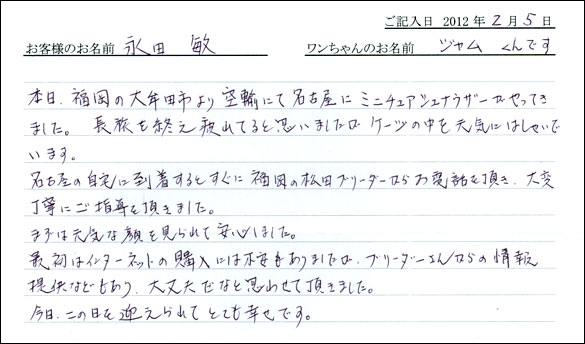 ご記入日 2012年2月5日
お客様のお名前 永田 敏 ワンちゃんのお名前 ジャム くんです
本日、福岡の大牟田市より空輸にて名古屋にミニチュアシュナウザーがやってき
ました。長旅を終え疲れてると思いましたが、ケージの中を元気にはしゃいで
います。
名古屋の自宅に到着するとすぐに福岡の松田ブリーダーからお電話を頂き、大変
丁寧にご指導を頂きました。
まずは元気な顔を見られて安心しました。
最初はインターネットの購入には不安もありましたが、ブリーダーさんからの情報
提供などもあり、大丈夫だなと思わせて頂きました。
今日、この日を迎えられてとても幸せです。